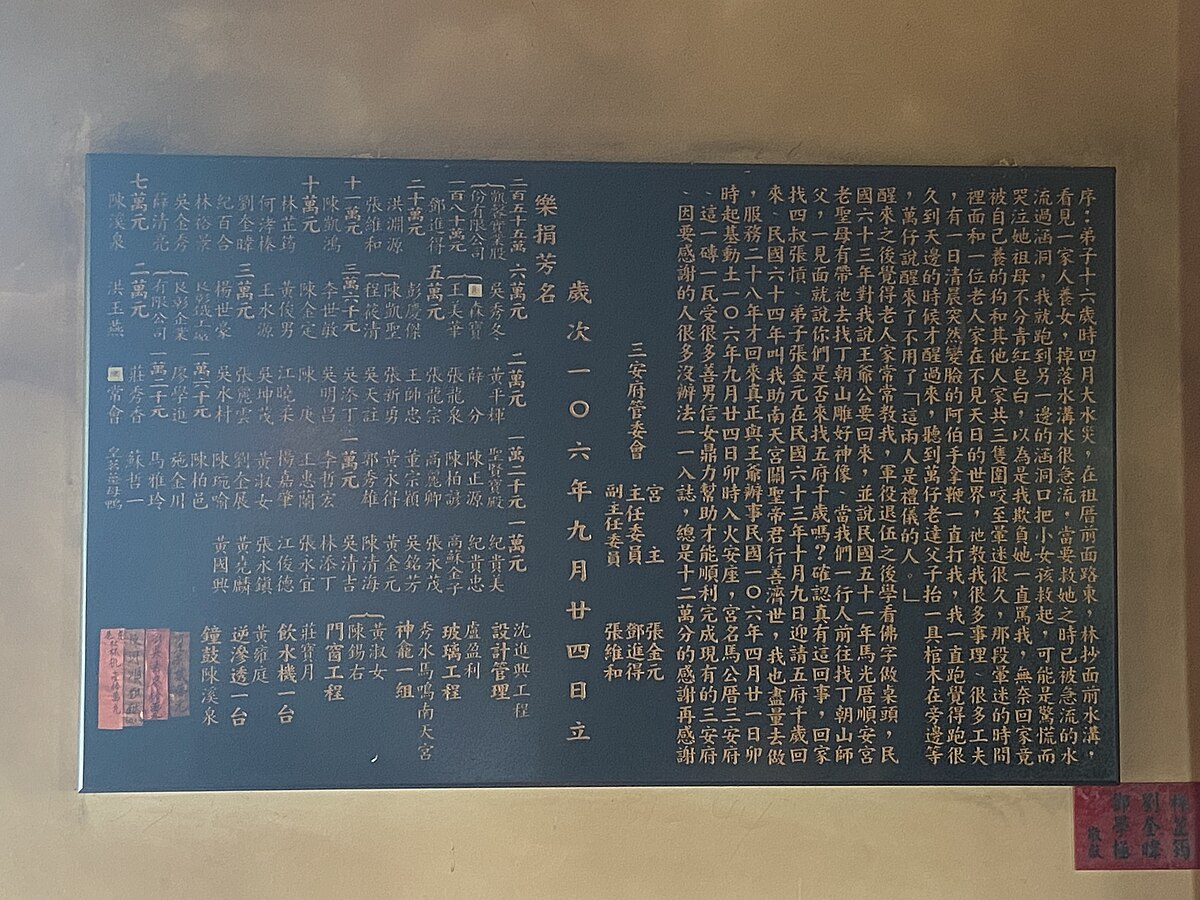 序：弟子十六歲時四月大水災，在祖厝前面路東，林抄面前水溝，
看見一家人養女，掉落水溝水很急流，當要救她之時已被急流的水
流過涵洞，我就跑到另一邊的涵洞口把小女孩救起，可能是驚慌而
哭泣她祖母不分青紅皂白，以為是我欺負她一直罵我，無奈回家竟
被自己養的狗和其他人家共三隻圍咬至暈迷很久，那段暈迷的時間
裡面和一位老人家在不見天日的世界，他教我很多事理、很多工夫
，有一日清晨突然變臉的阿伯手拿鞭一直打我，我一直跑覺得跑很
久到天邊的時候才醒過來，聽到萬仔老達父子抬一具棺木在旁邊等
，萬仔說醒來了不用了「這兩人是禮儀的人。」
醒來之後覺得老人家常常教我，軍役退伍之後學看佛字做桌頭，民
國六十三年對我說王爺公要回來，並說民國五十一年馬光厝順安宮
老聖母有帶祂去找丁朝山雕好神像、當我們一行人前往找丁朝山師
父，一見面就說你們是否來找五府千歲嗎？確認真有這回事，回家
找四叔張慎、弟子張金元在民國六十三年十月九日迎請五府千歲回
來、民國六十四年叫我助南天宮關聖帝君行善濟世，我也盡量去做
，服務二十八年才回來真正與王爺辦事民國一〇六年四月廿一日卯
時起基動土一〇六年九月廿四日卯時入火安座，宮名馬公厝三安府
、這一磚一瓦受很多善男信女鼎力幫助才能順利完成現有的三安府
、因要感謝的人很多沒辦法一一入誌，總是十二萬分的感謝再感謝
三安府管委會
宮主 張金元
主任委員 鄧進得
副主任委員 張維和
歲次一〇六年九月廿四日立
樂捐芳名
二百五十五萬
份有限公司
一百八十萬元
鄧進得
二十萬元
洪淵源
張維和
十一萬元
陳凱鴻
十萬元
林芷筠
何湋榛
劉金暐
紀百合
林裕景
吳金秀
薛清亮
七萬元
陳溪泉
六萬元
吳秀冬
王美華
五萬元
彭慶保
陳凱聖
程筱清
三萬六千元
李世敏
陳金定
黃俊男
王水源
三萬元
楊世豪
良彰企業
有限公司
二萬元
洪王燕
二萬元
黃平揮
薛分
張龍泉
張龍宗
王師忠
張新勇
吳天註
吳添丁
李明昌
陳庚
江曉柔
吳坤茂
張麗雲
吳水村
一萬六千元
廖學進
一萬二千元
莊秀香
常會
一萬二千元
聖賢寶殿
陳正源
陳柏諺
高麗卿
董宗穎
黃永得
郭秀雄
一萬元
李哲宏
王惠蘭
楊嘉肇
黃淑女
劉金展
陳琬喻
陳柏邑
施金川
馬雅玲
蘇哲一
一萬元
紀寶美
紀貴忠
高蘇金子
張永茂
吳銘芳
黃金元
陳清海
吳清吉
林添丁
張永宜
江俊德
張永鎮
黃堯麟
黃國興
沈進興工程
設計管理
盧盈利
玻璃工程
秀水馬鳴南天宮
神龕一組
黃淑女
陳錫右
門窗工程
莊寶月
飲水機一台
黃雍庭
逆滲透一台
鐘鼓陳溪泉
劉金暐
鄧學極
敬獻